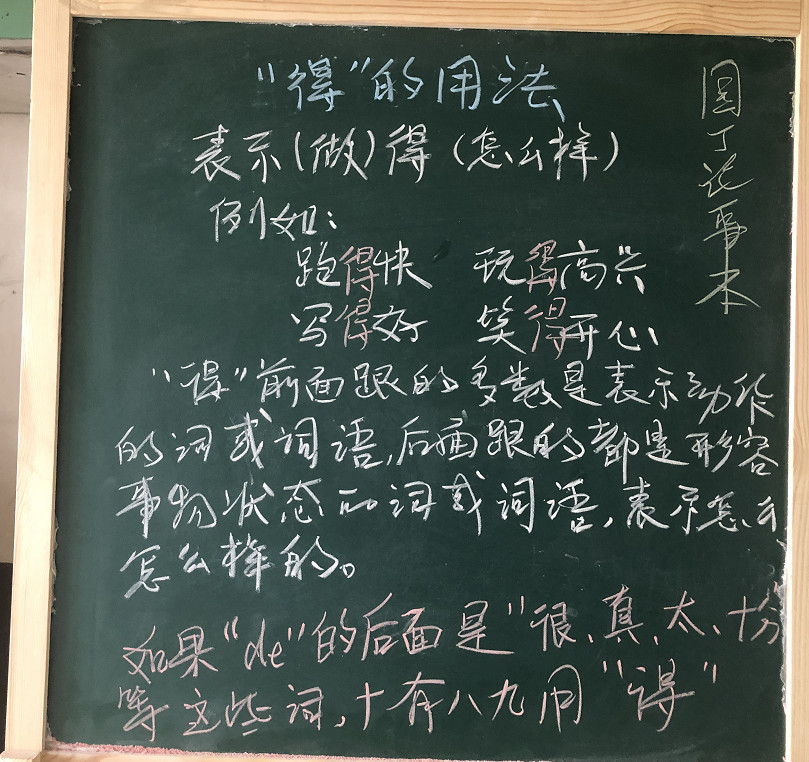 “得”的用法
表示(做)得(怎么样)
例如:
跑得快 玩得高兴
写得好 笑得开心
“得”前面跟的多数是表示动作
的词或词语,后面跟的都是形容
事物状态的词或词语,表示怎么
怎么样的。
如果“de”的后面是“很、真、太、十分
等这些词,十有八九用“得”
园丁说事本